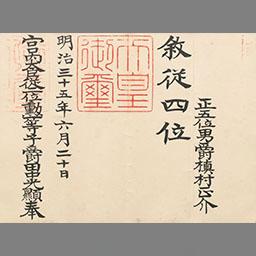 正五位男爵槙村正介
敍從四位
天皇御璽
明治三十五年六月二十日
宮内大臣從二位勳一等子爵田中光顯奉